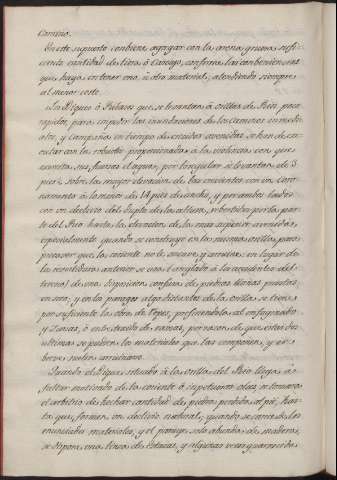 Camino.
En este supuesto conbiene agregar con la arena gruesa sufi-
ciente cantidad de tierra ó Cascajo, conforme las combeniencias
que haya en tener uno, ú otro material; atendiendo siempre
al menor coste.
Los Diques ó Pretiles que se levantan á orillas de Rios, para
rapidos, para impedir las inundaciones de los Caminos inmedi-
atos, y Campaña en tiempo de crecidas avenidas se han de exe-
cutar con la robustéz proporcionada á la violencia con que
exercita sus fuerzas el agua; por lo regular se levantan de 3
pies sobre la mayor elevacion de las crecientes con un Coro-
namento á lo menos de 14 pies de ancho, y por ambos lados
con un declivio del duplo de la altura, rebestidos por la par-
te del Rio hasta la elevacion de la mas superior avenida,
especialmente quando se construyen en las mismas orillas, para
precaver que la corriente no le socave, y arruine; en lugar de
los rebestidos anterior se usa (arreglado á los accidentes del
terreno) de una disposicion confusa de piedras llanas puestas
en seco; y en los parages algo distantes de la orilla, se tiene
por suficiente la obra de Cespes, prefiriendola al enfaginado
y Zarzas, ó entretexido de ramas, por razon de que estas dos
ultimas se pudren los materiales que las componen, y en
breve suelen arruinarse.
Quando el Dique situado á la orilla del Rio llega á
faltar motivado de la corriente ó impetuosas olas, se toma
el arbitrio de hechar cantidad de piedra perdida al pie, has-
ta que formen un declivio natural; quando se carece de los
enunciados materiales, y el parage solo abunda de maderas,
se dispone una linea de Estacas, y algunas veces guarnecida